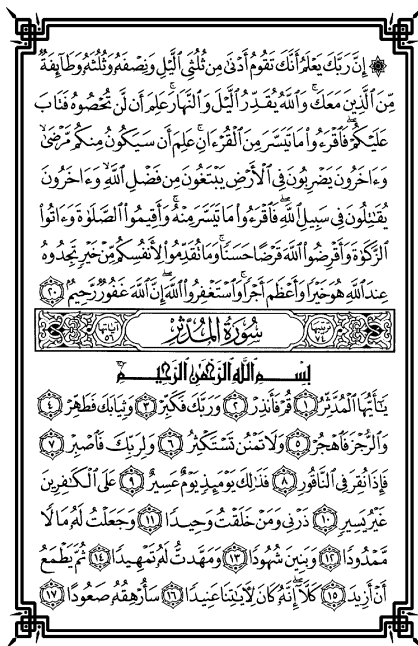 ۞ إِنَّ رَبَّكَ يَعْلَمُ أَنَّكَ تَقُومُ أَدْنَىٰ مِن ثُلُثَيِ ٱلَّيْلِ وَنِصْفَهُۥ وَثُلُثَهُۥ وَطَآئِفَةٌ
مِّنَ ٱلَّذِينَ مَعَكَ ۚ وَٱللَّهُ يُقَدِّرُ ٱلَّيْلَ وَٱلنَّهَارَ ۚ عَلِمَ أَن لَّن تُحْصُوهُ فَتَابَ
عَلَيْكُمْ ۖ فَٱقْرَءُوا۟ مَا تَيَسَّرَ مِنَ ٱلْقُرْءَانِ ۚ عَلِمَ أَن سَيَكُونُ مِنكُم مَّرْضَىٰ ۙ
وَءَاخَرُونَ يَضْرِبُونَ فِى ٱلْأَرْضِ يَبْتَغُونَ مِن فَضْلِ ٱللَّهِ ۙ وَءَاخَرُونَ
يُقَـٰتِلُونَ فِى سَبِيلِ ٱللَّهِ ۖ فَٱقْرَءُوا۟ مَا تَيَسَّرَ مِنْهُ ۚ وَأَقِيمُوا۟ ٱلصَّلَوٰةَ وَءَاتُوا۟
ٱلزَّكَوٰةَ وَأَقْرِضُوا۟ ٱللَّهَ قَرْضًا حَسَنًا ۚ وَمَا تُقَدِّمُوا۟ لِأَنفُسِكُم مِّنْ خَيْرٍ تَجِدُوهُ
عِندَ ٱللَّهِ هُوَ خَيْرًا وَأَعْظَمَ أَجْرًا ۚ وَٱسْتَغْفِرُوا۟ ٱللَّهَ ۖ إِنَّ ٱللَّهَ غَفُورٌ رَّحِيمٌۢ ٢٠
ترتيبها ٧٤ سُورَةُ المُدَّثِّرِ آياتها ٥٦
بِسْمِ ٱللَّهِ ٱلرَّحْمَـٰنِ ٱلرَّحِيمِ
يَـٰٓأَيُّهَا ٱلْمُدَّثِّرُ ١ قُمْ فَأَنذِرْ ٢ وَرَبَّكَ فَكَبِّرْ ٣ وَثِيَابَكَ فَطَهِّرْ ٤
وَٱلرُّجْزَ فَٱهْجُرْ ٥ وَلَا تَمْنُن تَسْتَكْثِرُ ٦ وَلِرَبِّكَ فَٱصْبِرْ ٧
فَإِذَا نُقِرَ فِى ٱلنَّاقُورِ ٨ فَذَٰلِكَ يَوْمَئِذٍ يَوْمٌ عَسِيرٌ ٩ عَلَى ٱلْكَـٰفِرِينَ
غَيْرُ يَسِيرٍ ١٠ ذَرْنِى وَمَنْ خَلَقْتُ وَحِيدًا ١١ وَجَعَلْتُ لَهُۥ مَالًا
مَّمْدُودًا ١٢ وَبَنِينَ شُهُودًا ١٣ وَمَهَّدتُّ لَهُۥ تَمْهِيدًا ١٤ ثُمَّ يَطْمَعُ
أَنْ أَزِيدَ ١٥ كَلَّآ ۖ إِنَّهُۥ كَانَ لِـَٔايَـٰتِنَا عَنِيدًا ١٦ سَأُرْهِقُهُۥ صَعُودًا ١٧